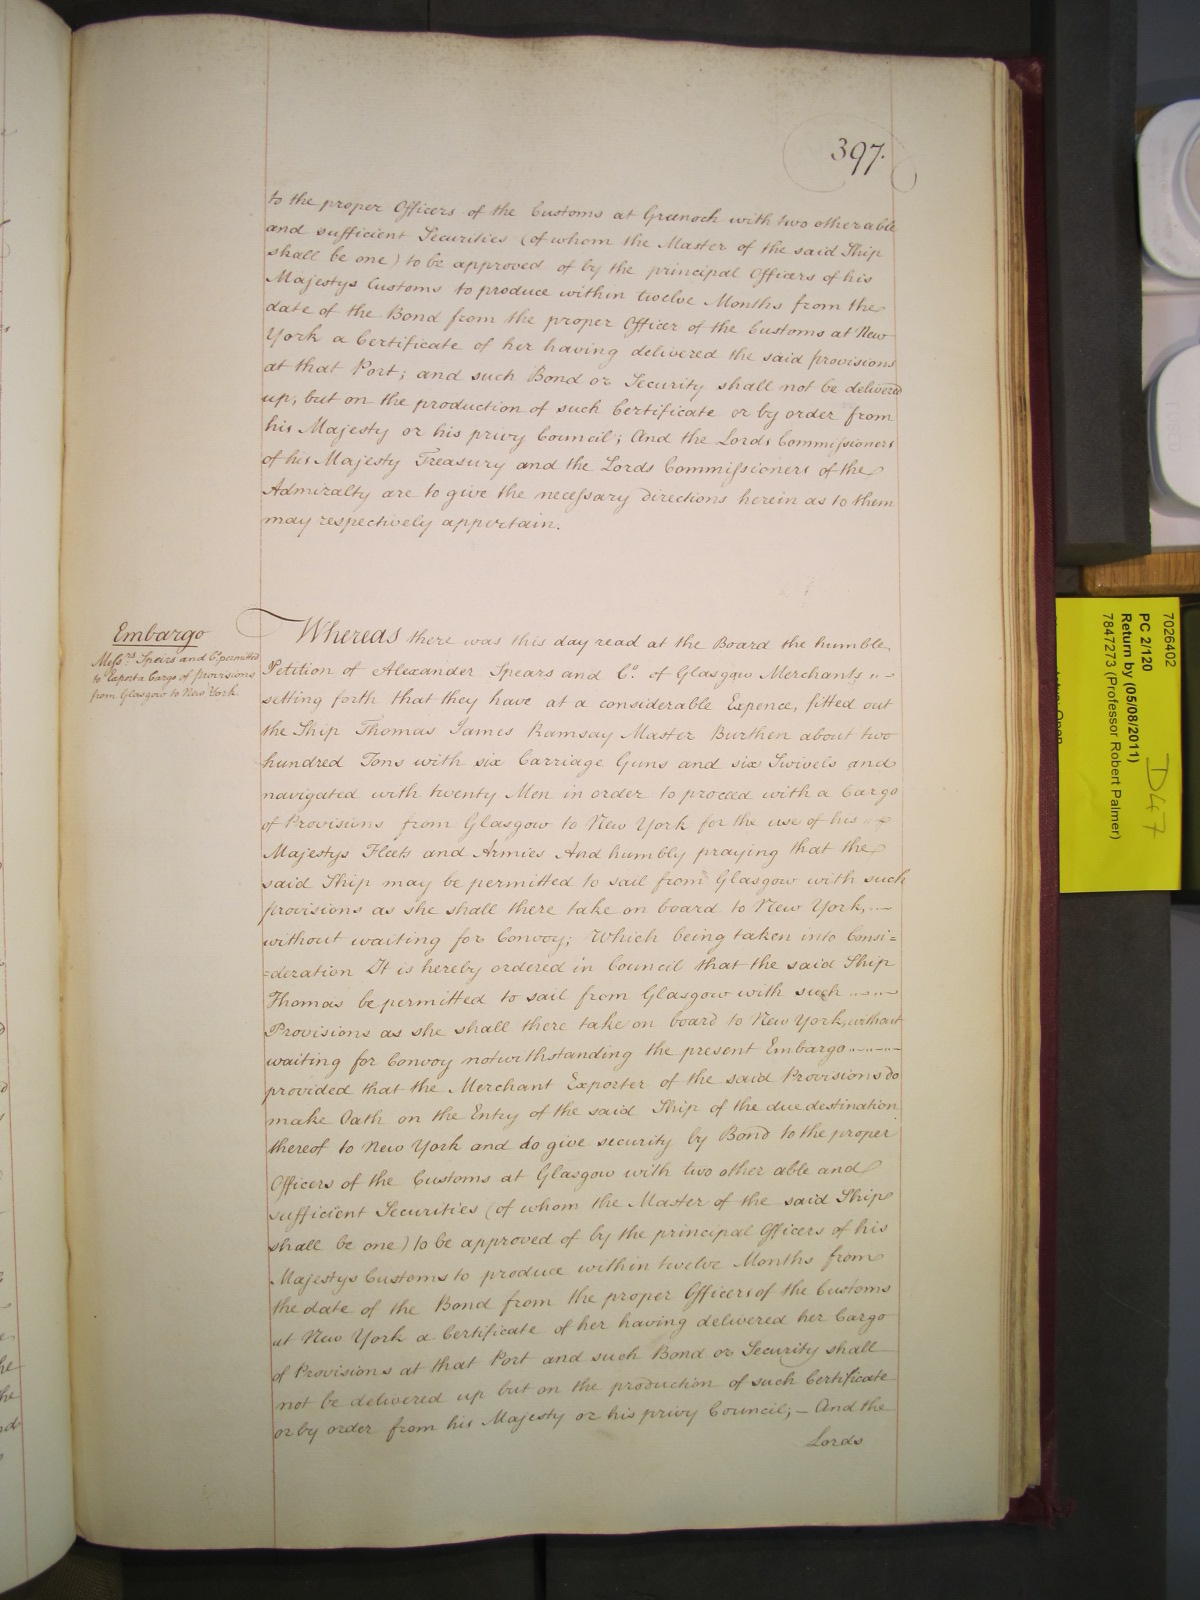 397.
to the proper Officers of the Customs at Greenock with two other able
and sufficient Securities (of whom the Master of the said Ship
shall be one) to be approved of by the principal Officers of his
Majestys Customs to produce within twelve Months from the
date of the Bond from the proper Officer of the Customs at New
York a Certificate of her having delivered the said provisions
at that Port; and such Bond or Security shall not be delivered
up, but on the production of such Certificate or by order from
his Majesty or his privy Council; And the Lords Commissioners
of his Majesty Treasury and the Lords Commissioners of the
Admiralty are to give the necessary directions herein as to them
may respectively appertain.
Embargo
Messrs. Speirs and Co. permitted
to Export a Cargo of provisions
from Glasgow to New York
Whereas there was this day read at the Board the humble
Petition of Alexander Spears and Co. of Glasgow Merchants
setting forth that they have at a considerable Expence, fitted out
the Ship Thomas James Ramsay Master Burthen about two
hundred Tons with six Carriage Guns and six Swivels and
navigated with twenty Men in order to proceed with a Cargo
of Provisions from Glasgow to New York for the use of his
Majestys Fleets and Armies And humbly praying that the
said Ship may be permitted to sail from Glasgow with such
provisions as she shall there take on board to New York,
without waiting for Convoy; Which being taken into Consi=
=deration It is hereby ordered in Council that the said Ship
Thomas be permitted to sail from Glasgow with such
Provisions as she shall there take on board to New York, without
waiting for Convoy notwithstanding the present Embargo
provided that the Merchant Exporter of the said Provisions do
make Oath on the Entry of the said Ship of the due destination
thereof to New York and do give security by Bond to the proper
Officers of the Customs at Glasgow with two other able and
sufficient Securities (of whom the Master of the said Ship
shall be one) to be approved of by the principal Officers of his
Majestys Customs to produce within twelve Months from
the date of the Bond from the proper Officers of the Customs
at New York a Certificate of her having delivered her Cargo
of Provisions at that Port and such Bond or Security shall
not be delivered up but on the production of such Certificate
or by order from his Majesty or his privy Council; — And the
Lords
7026402
PC 2/120
Return by (05/08/2011)
7847273 (Professor Robert Palmer)
D47